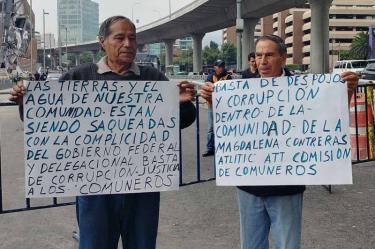 LAS TIERRAS - Y EL
AGUA DE NUESTRA
COMUNIDAD - ESTAN
SIENDO SAQUEADAS
CON LA COMPLICIDAD
DEL GOBIERNO FEDERAL
Y DELEGACIONAL BASTA
DE CORRUPCION JUSTICIA
A LOS - COMUNEROS
BASTA DE DESPOJO
Y CORRUPCION
DENTRO - DE - LA -
COMUNIDAD - DE - LA
MAGDALENA CONTRERAS
ATLITIC ATT COMISION
DE COMUNEROS